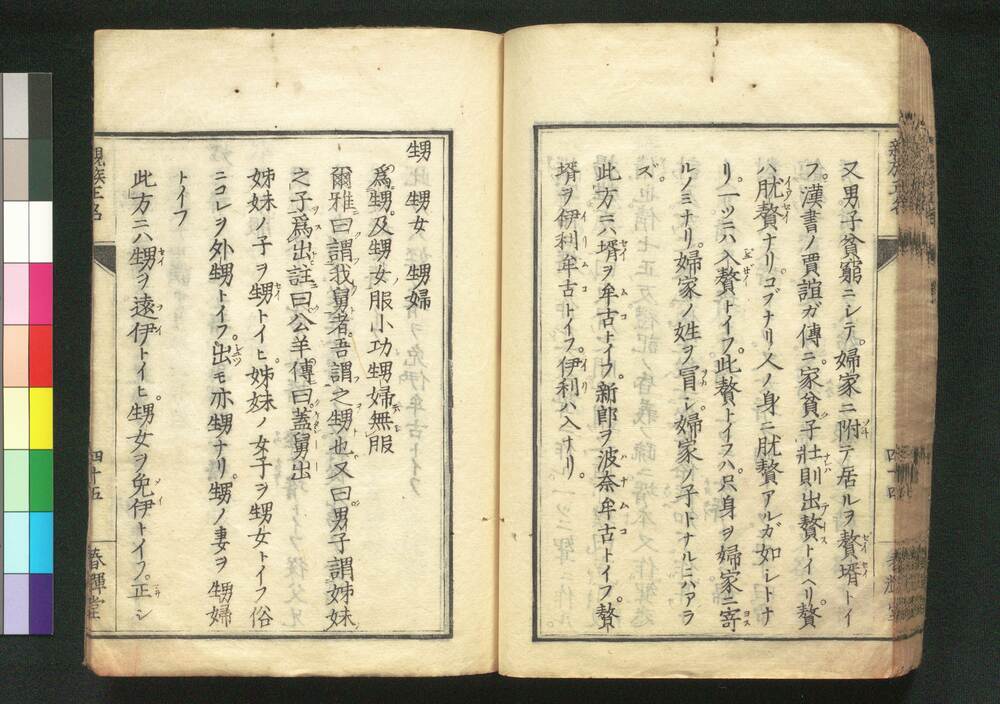 又男子貧窮ニシテ婦家ニ附テ居ルヲ贅壻トイ
フ漢書ノ賈誼ガ傳ニ家貧子壯則出贅トイヘリ贅
ハ肬贅ナリコブナリ人ノ身ニ肬贅アルガ如シトナ
リ一ツニハ入贅トイフ此贅トイフハ只身ヲ婦家ニ寄
ルノミナリ婦家ノ姓ヲ冒シ婦家ノ子トナルニハアラ
ズ
此方ニハ壻ヲ牟古トイフ新郎ヲ波奈牟古トイフ贅
壻ヲ伊利牟古トイフ伊利ハ入ナリ
親族正名
四十四
春輝堂
甥 甥女 甥婦
爲甥及甥女服小功甥婦無服
爾雅曰謂我舅者吾謂之甥也又曰男子謂姊妹
之子爲出註曰公羊傳曰蓋舅出
姊妹ノ子ヲ甥トイヒ姊妹ノ女子ヲ甥女トイフ俗
ニコレヲ外甥トイフ出モ亦甥ナリ甥ノ妻ヲ甥婦
トイフ
此方ニハ甥ヲ遠伊トイヒ甥女ヲ免伊トイフ正シ
親族正名
四十五
春輝堂